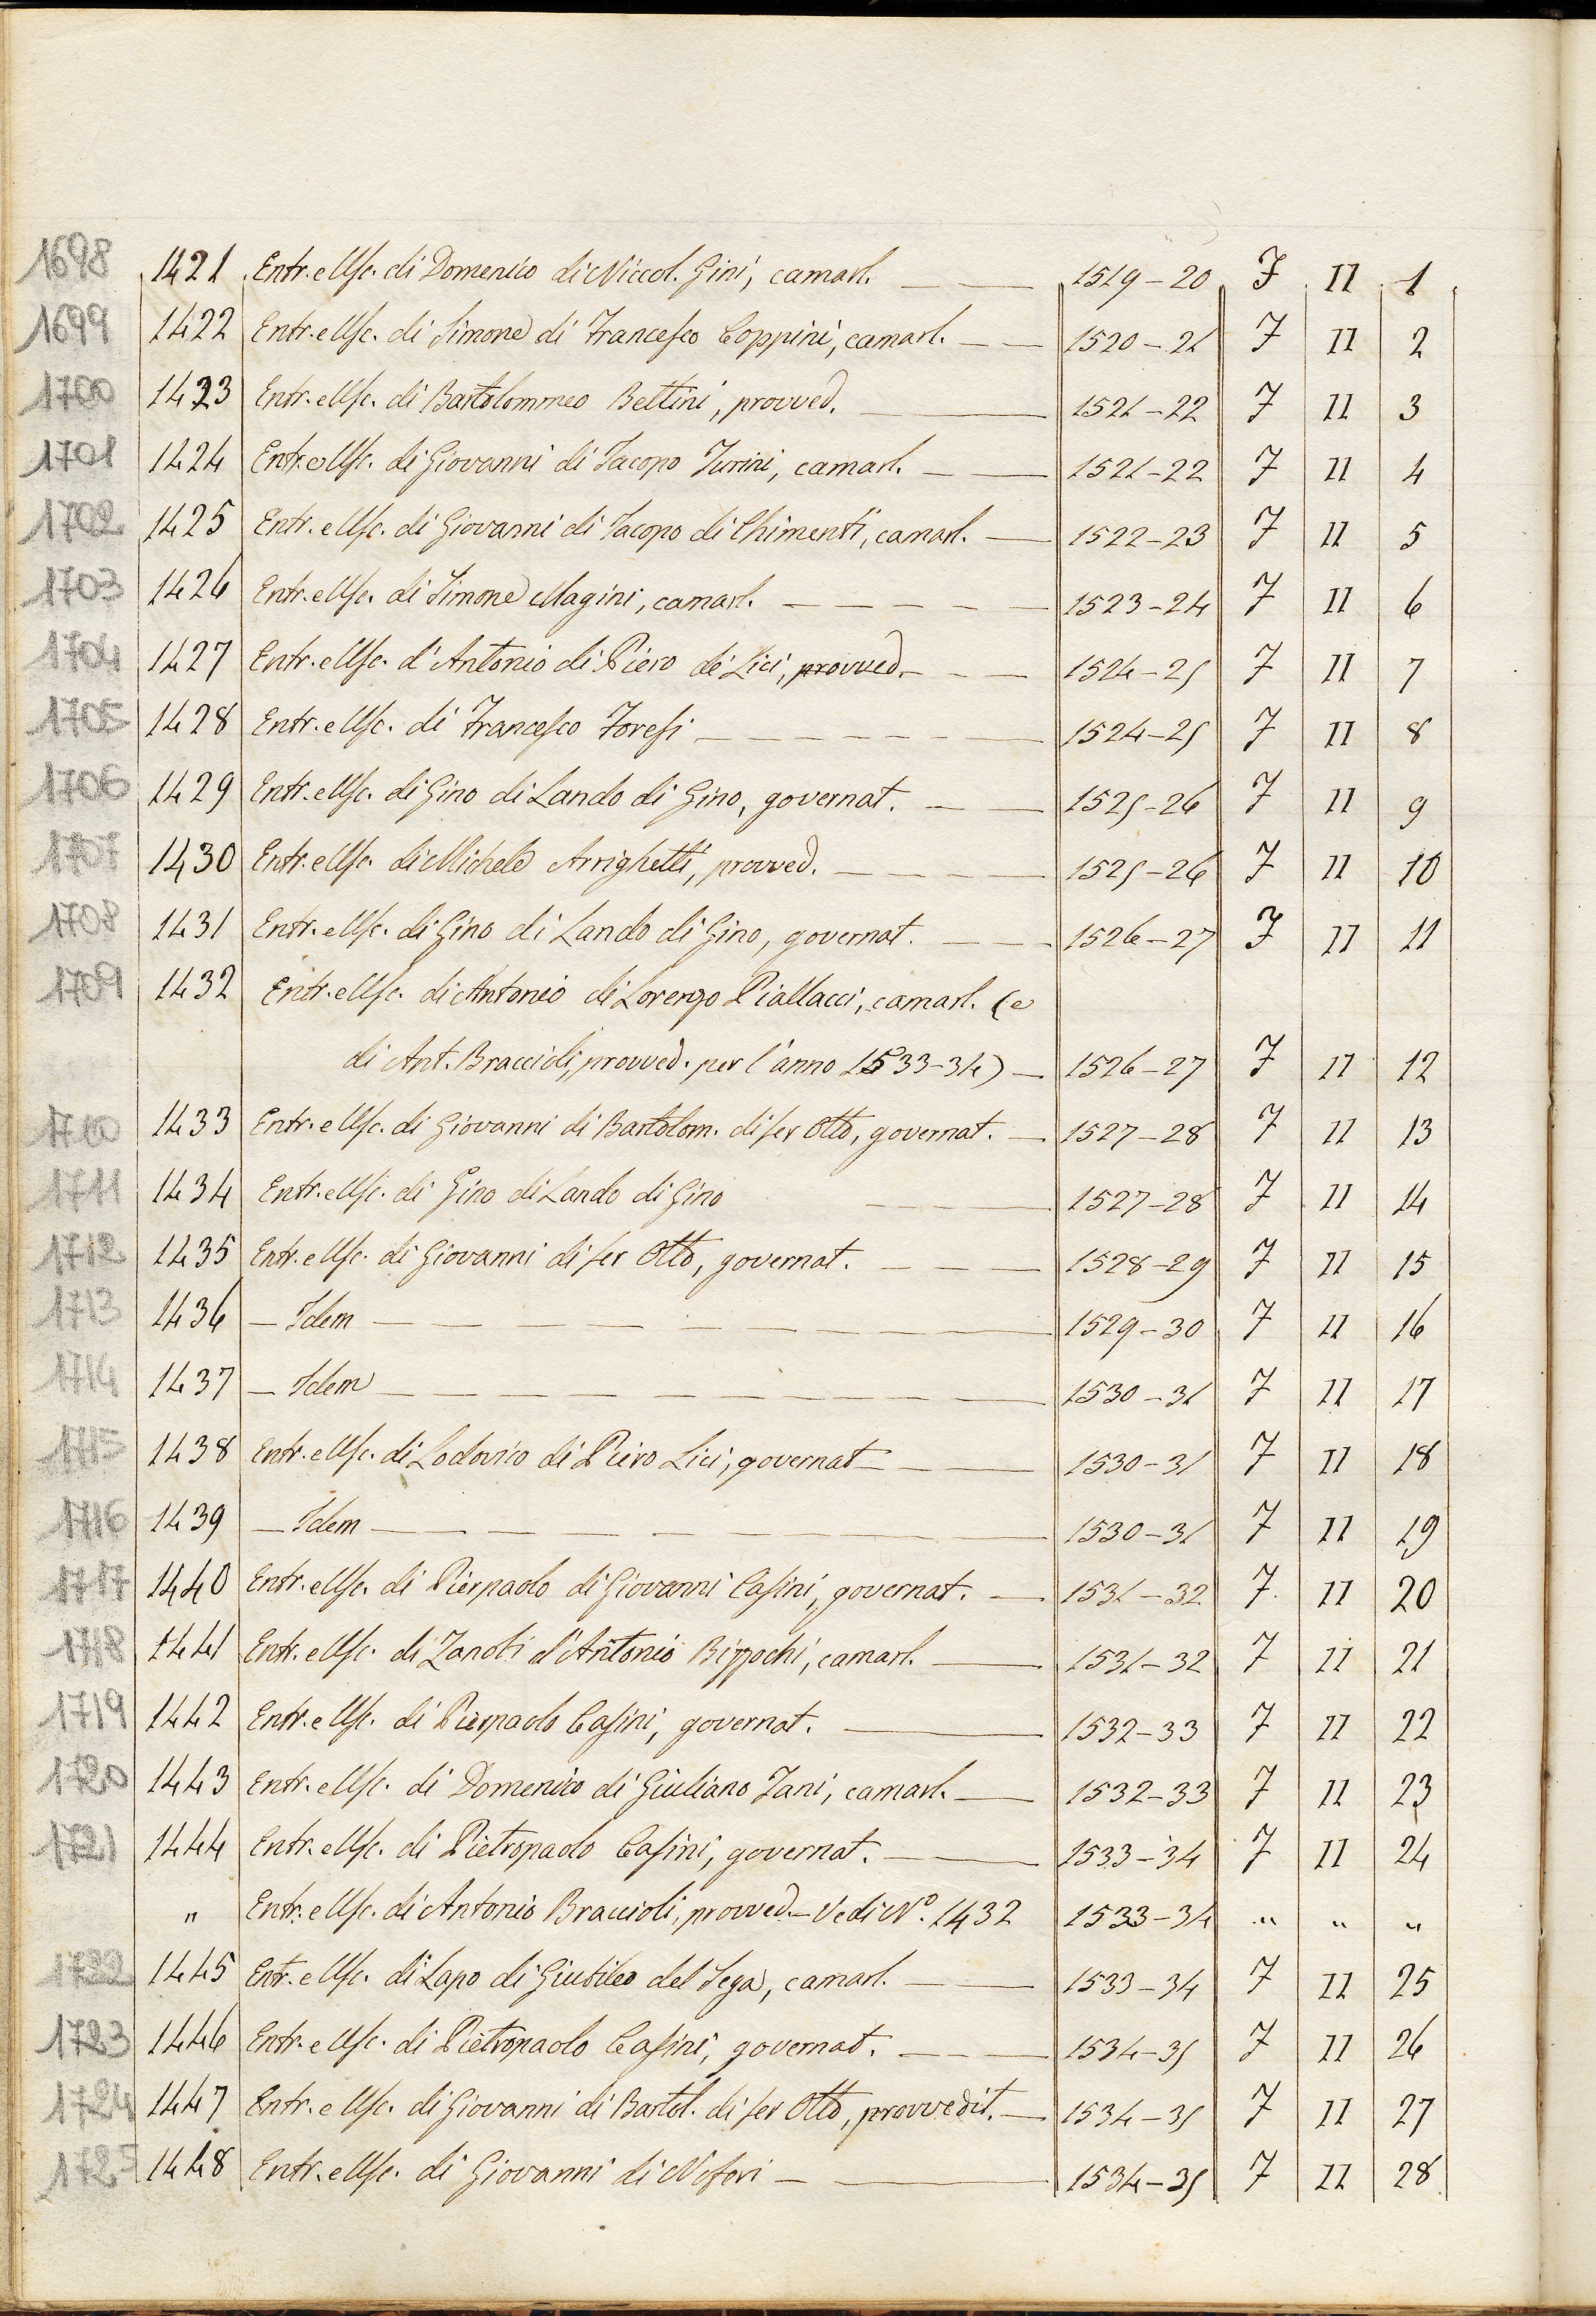 1698 1421 Entr. e Usc. di Domenico di Niccol. Gini, camarl. 1519-20 J II 1
1699 1422 Entr. e Usc. di Simone di Francesco Coppini, camarl. 1520-21 J II 2
1700 1423 Entr. e Usc. di Bartolommeo Bettini, provved. 1521-22 J II 3
1701 1424 Entr. e Usc. di Giovanni di Jacopo Turini, camarl. 1521-22 J II 4
1702 1425 Entr. e Usc. di Giovanni di Jacopo di Chimenti, camarl. 1522-23 J II 5
1703 1426 Entr. e Usc. di Simone Magini, camarl. 1523-24 J II 6
1704 1427 Entr. e Usc. d'Antonio di Piero de' Lici, provved. 1524-25 J II 7
1705 1428 Entr. e Usc. di Francesco Foresi 1524-25 J II 8
1706 1429 Entr. e Usc. di Gino di Lando di Gino, governat. 1525-26 J II 9
1707 1430 Entr. e Usc. di Michele Arrighetti, provved. 1525-26 J II 10
1708 1431 Entr. e Usc. di Gino di Lando di Gino, governat. 1526-27 J II 11
1709 1432 Entr. e Usc. di Antonio di Lorenzo Piallacci, camarl. (e
di Ant. Braccioli, provved. per l'anno 1533-34) 1526-27 J II 12
1710 1433 Entr. e Usc. di Giovanni di Bartolom. di ser Otto, governat. 1527-28 J II 13
1711 1434 Entr. e Usc. di Gino di Lando di Gino 1527-28 J II 14
1712 1435 Entr. e Usc. di Giovanni di ser Otto, governat. 1528-29 J II 15
1713 1436 — Idem 1529-30 J II 16
1714 1437 — Idem 1530-31 J II 17
1715 1438 Entr. e Usc. di Lodovico di Piero Lici, governat 1530-31 J II 18
1716 1439 — Idem 1530-31 J II 19
1717 1440 Entr. e Usc. di Pierpaolo di Giovanni Casini, governat. 1531-32 J II 20
1718 1441 Entr. e Usc. di Zanobi d'Antonio Bizzochi, camarl. 1531-32 J II 21
1719 1442 Entr. e Usc. di Pierpaolo Casini, governat. 1532-33 J II 22
1720 1443 Entr. e Usc. di Domenico di Giuliano Tani, camarl. 1532-33 J II 23
1721 1444 Entr. e Usc. di Pietropaolo Casini, governat. 1533-34 J II 24
" Entr. e Usc. di Antonio Braccioli, provved. — Vedi N° 1432 1533-34 " " "
1722 1445 Entr. e Usc. di Lapo di Giubileo del Sega, camarl. 1533-34 J II 25
1723 1446 Entr. e Usc. di Pietropaolo Casini, governat. 1534-35 J II 26
1724 1447 Entr. e Usc. di Giovanni di Bartol. di ser Otto, provvedit. 1534-35 J II 27
1725 1448 Entr. e Usc. di Giovanni di Nofori 1534-35 J II 28